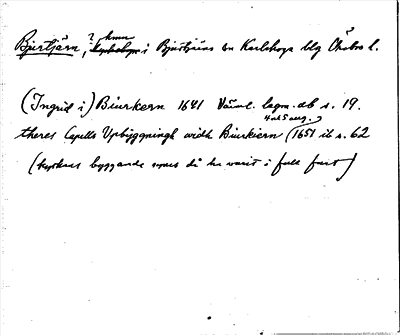 Bjurtjärn, ? hmn i Bjurtjärns sn Karlskoga blg Örebro l.
(Ingrid i) Biurkern 1641 Värml. lagm. db s. 19.
theres Capells Upbyggningh widh Biurkiern (1651 ib s. 62
(kyrkans byggande synes då ha varit i full fart)